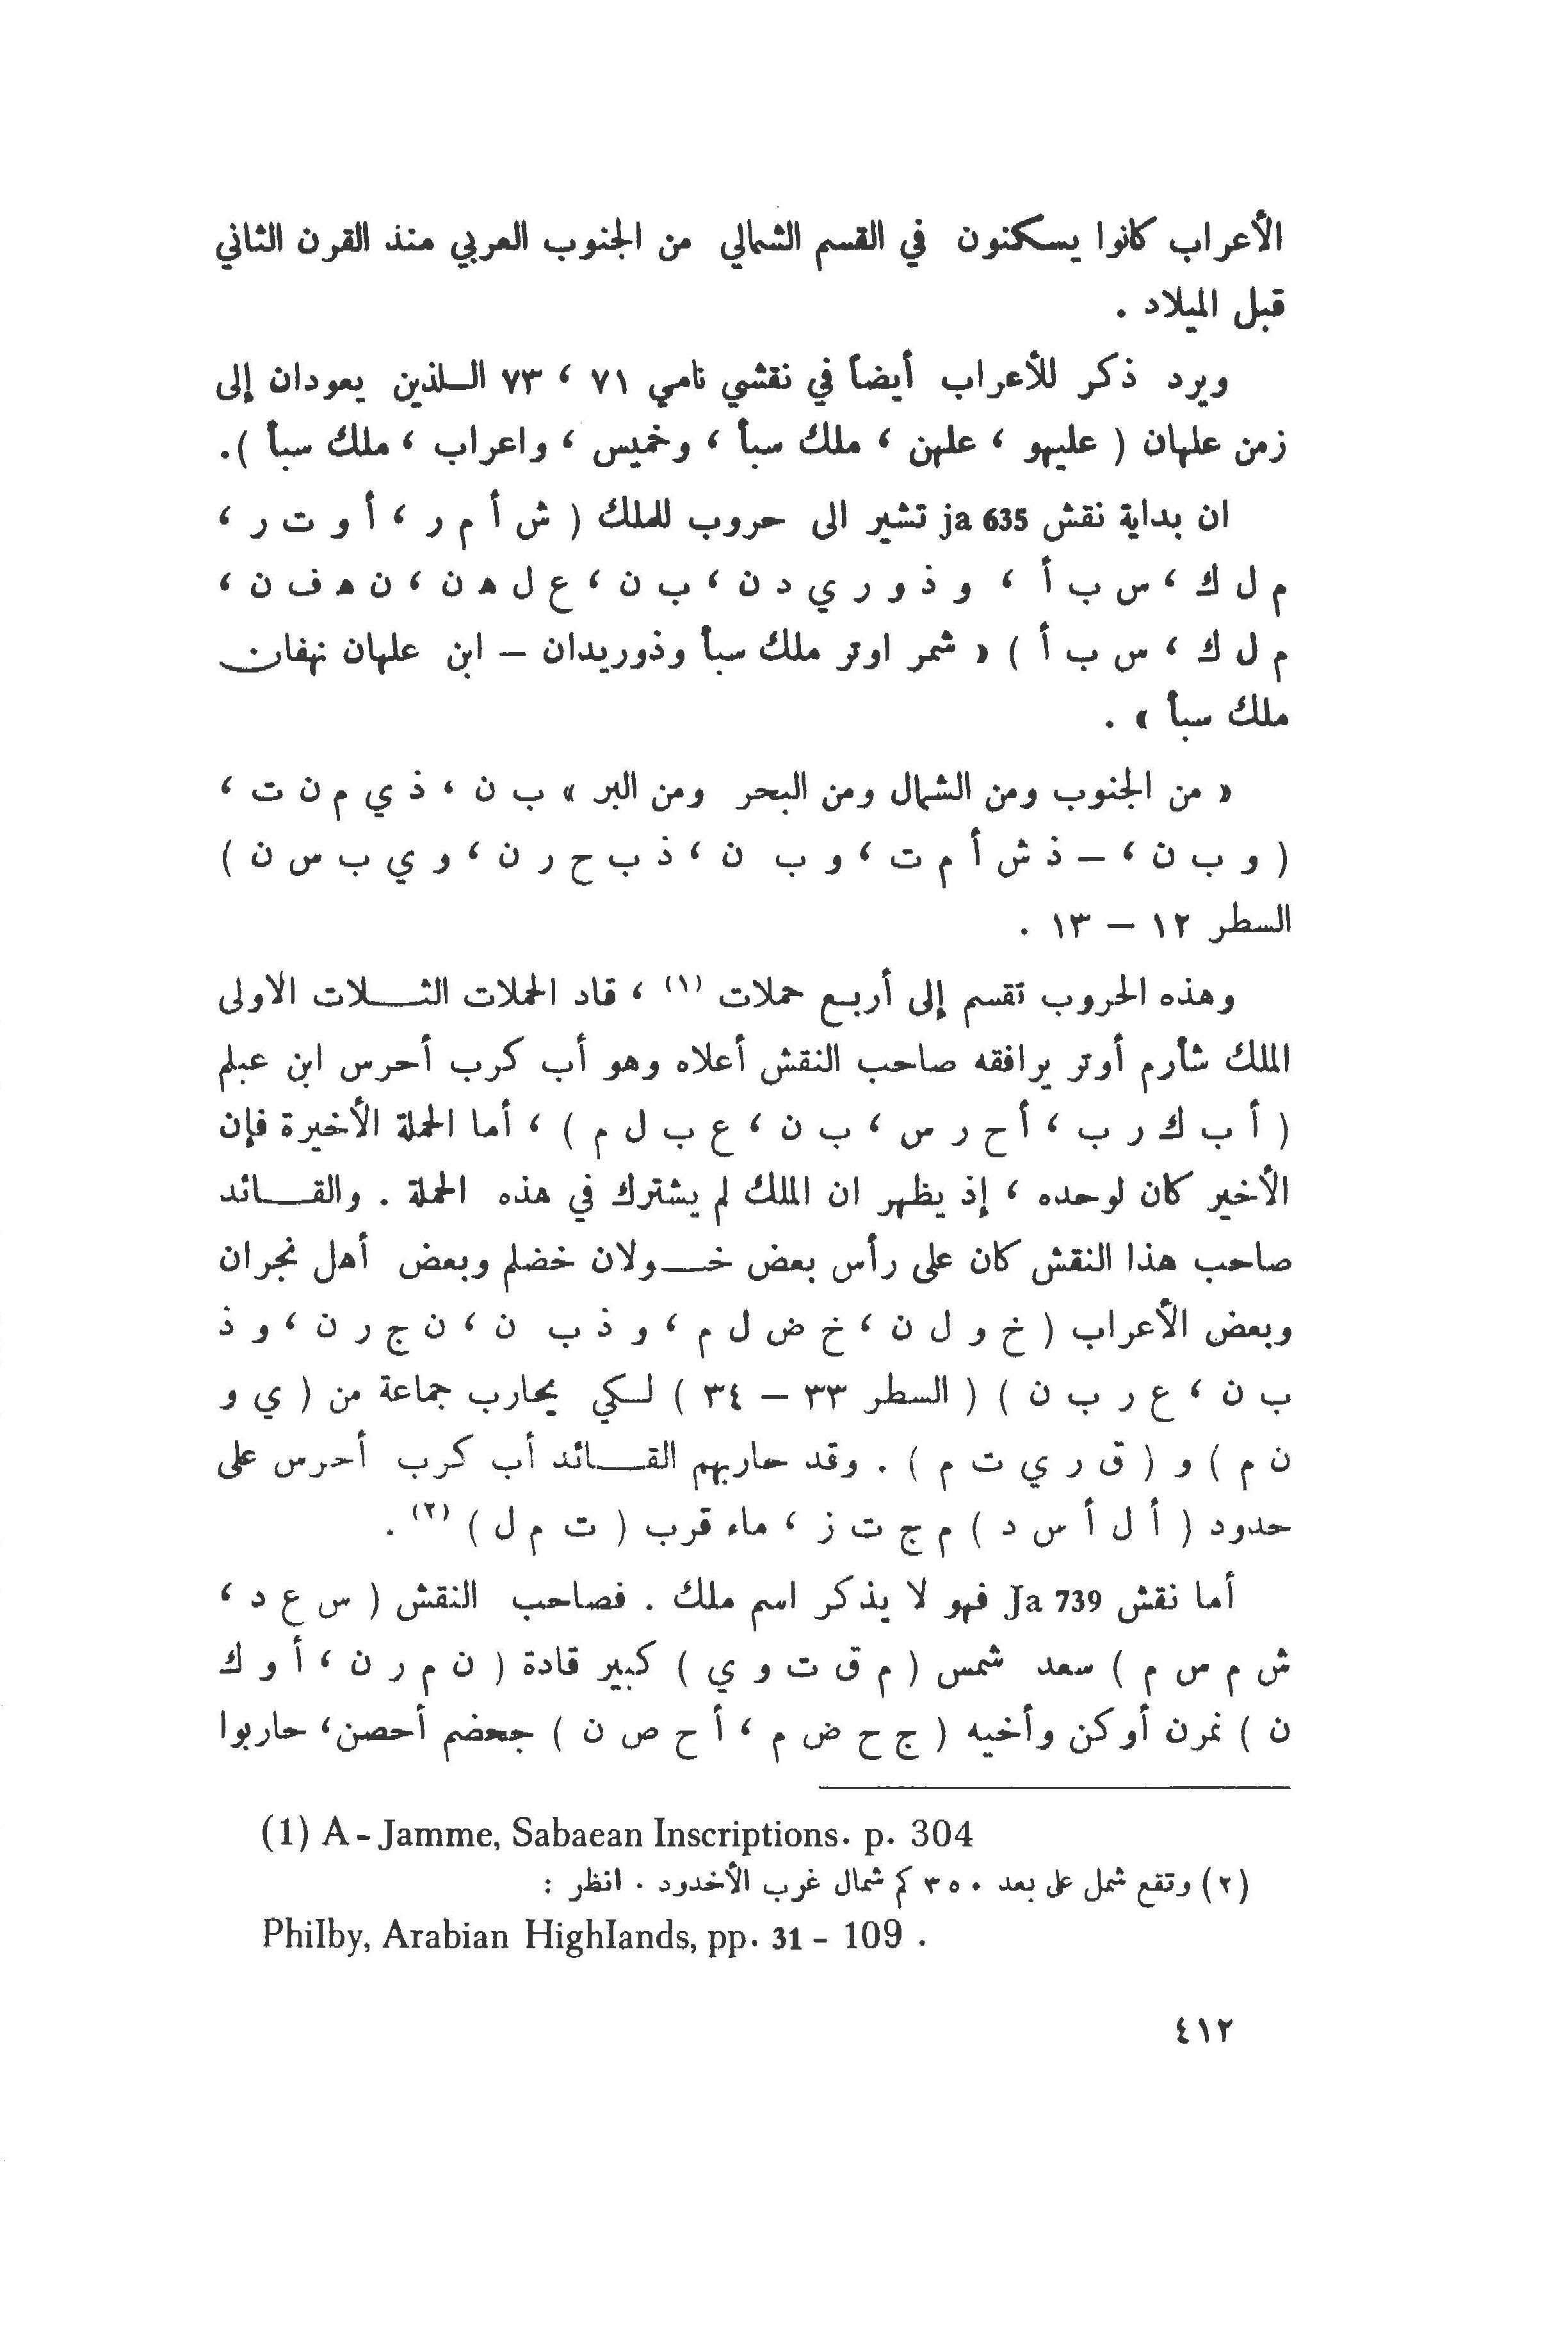 الأعراب كانوا يسكنون في القسم الشمالي من الجنوب العربي منذ القرن الثاني
قبل الميلاد .
ويرد ذكر للأعراب أيضاً في نقشي نامي ٧١ ، ٧٣ اللذين يعودان إلى
زمن علهان ( عليهو ، علهن ، ملك سبأ ، وخميس ، واعراب ، ملك سبأ ).
ان بداية نقش ja 635 تشير الى حروب للملك ( ش أ م ر ، أ و ت ر ،
م ل ك ، س ب أ ، و ذ و ر ي د ن ، ب ن ، ع ل ه ن ، ن ه ف ن ،
م ل ك ، س ب أ ) « شمر اوتر ملك سبأ وذوريدان – ابن علهان نهفان
ملك سبأ » .
« من الجنوب ومن الشمال ومن البحر ومن البر » ب ن ، ذ ي م ن ت ،
( و ب ن ، – ذ ش أ م ت ، و ب ن ، ذ ب ح ر ن ، و ي ب س ن )
السطر ١٢ – ١٣ .
وهذه الحروب تقسم إلى أربع حملات (١) ، قاد الحملات الثلاث الاولى
الملك شأرم أوتر يرافقه صاحب النقش أعلاه وهو أب كرب أحرس ابن عبلم
( أ ب ك ر ب ، أ ح ر س ، ب ن ، ع ب ل م ) ، أما الحملة الأخيرة فإن
الأخير كان لوحده ، إذ يظهر ان الملك لم يشترك في هذه الحملة . والقائد
صاحب هذا النقش كان على رأس بعض خولان خضلم وبعض أهل نجران
وبعض الأعراب ( خ و ل ن ، خ ض ل م ، و ذ ب ن ، ن ج ر ن ، و ذ
ب ن ، ع ر ب ن ) ( السطر ٣٣ – ٣٤ ) لكي يحارب جماعة من ( ي و
ن م ) و ( ق ر ي ت م ) . وقد حاربهم القائد أب كرب أحرس على
حدود ( أ ل أ س د ) م ج ت ز ، ماء قرب ( ت م ل ) (٢) .
أما نقش Ja 739 فهو لا يذكر اسم ملك . فصاحب النقش ( س ع د ،
ش م س م ) سعد شمس ( م ق ت و ي ) كبير قادة ( ن م ر ن ، أ و ك
ن ) نمرن أوكن وأخيه ( ج ح ض م ، أ ح ص ن ) جحضم أحصن ، حاربوا
(1) A - Jamme, Sabaean Inscriptions. p. 304
(٢) وتقع شمل على بعد ٣٥٠ كم شمال غرب الأخدود . انظر :
Philby, Arabian Highlands, pp. 31 - 109 .
٤١٢